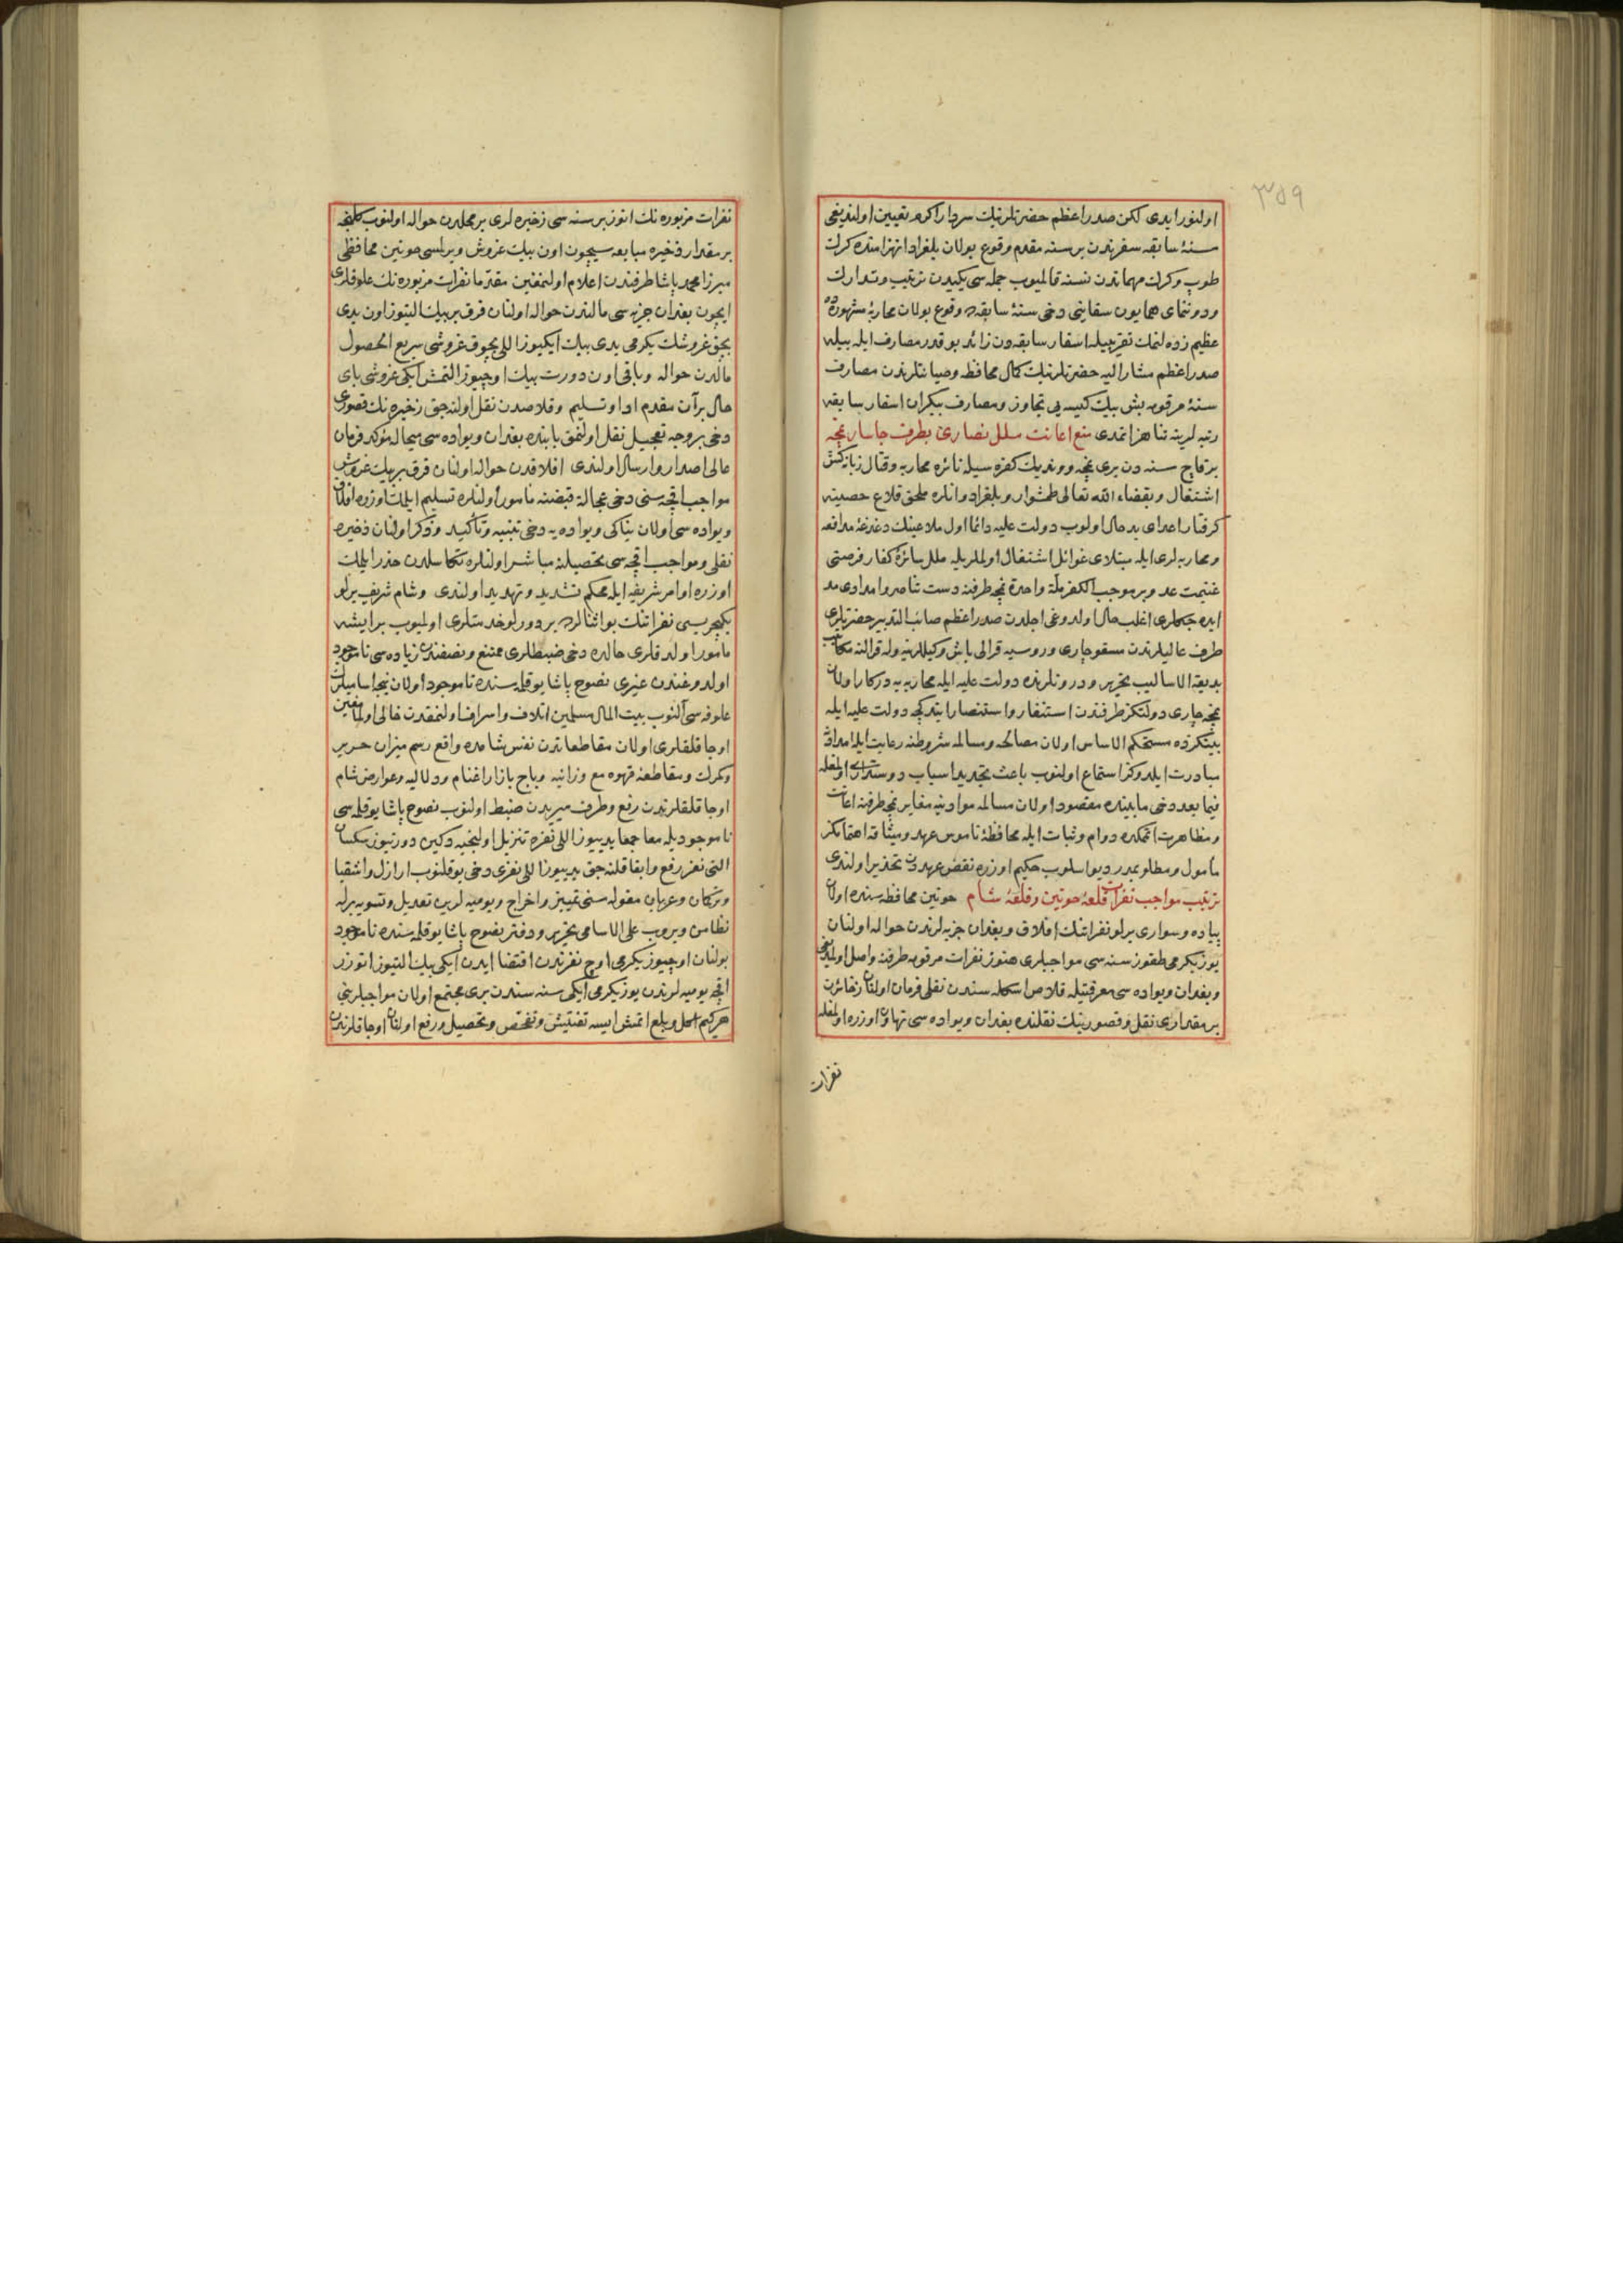 ٣٥٩
اولنور ایدی لکن صدر اعظم حضرتلرینك سردار اکرم تعیین اولندیغی
سنۀ سابقه سفرندن بر سنه مقدم وقوع بولان بلغراد انهزامنده کرك
طوپ وکرك مهماتدن نسنه قالمیوب جمله سی یکیدن ترتیب وتدارك
ودوننمای همایون سفاینی دخی سنۀ سابقه ده وقوع بولان محاربۀ مشهوره ده
عظیم زده لنمك تقریبیله اسفار سابقه دن زائد بو قدر مصارف ایله بیله
صدر اعظم مشار الیه حضرتلرینك کمال محافظه وصیانتلرندن مصارف
سنۀ مرقومه بش بیك کیسه یی تجاوز ومصارف بیکران اسفار سابقه
رتبه لرینه تناهز اتمدی منع اعانت ملل نصاری بطرف جاسار نمچه
بر قاچ سنه دن بری نمچه ووندیك کفره سیله نائره محاربه وقتال زبانه کش
اشتغال وبقضاء الله تعالی طمشوار وبلغراد وانلره ملحق قلاع حصینه
کرفتار اعدای بد حال اولوب دولت علیه دائما اول ملاعینك دغدغۀ مدافعه
ومحاربه لری ایله مبتلای غوائل اشتغال اولملریله ملل سائرۀ کفار فرصتی
غنیمت عد وبر موجب الکفر ملة واحدة نمچه طرفنه دست تناصر وامدادی مد
ایده جکلری اغلب حال اولدوغی اجلدن صدر اعظم صائب التدبیر حضرتلری
طرف عالیلرندن مسقو چاری وروسیه قرالی باش وکیللرینه وله قرالنه مکاتیب
بدیعة الاسالیب تحریر ودرونلرنده دولت علیه ایله محاربه یه درکار اولان
نمچه چاری دولتکز طرفندن استنفار واستنصار ایتدکجه دولت علیه ایله
بینکزده مستحکم الاساس اولان مصالحه ومسالمه شروطنه رعایت ایله امداد
مبادرت ایلدوکز استماع اولنوب باعث تجدید اسباب دوستداری اولمغله
فیما بعد دخی مابینده مقصود اولان مسالمه موادینه مغایر نمچه طرفنه اعانت
ومظاهرت اتمکده دوام وثبات ایله محافظۀ ناموس عهد ومیثاقه اهتمامکز
مأمول ومطلوبمدر دیو اسلوب حکیم اوزره نقض عهددن تحذیر اولندی
ترتیب مواجب نفرات قلعۀ خوتین وقلعۀ شام خوتین محافظه سنده اولان
پیاده وسواری یرلو نفراتنك افلاق وبغدان جزیه لرندن حواله اولنان
یوز یکرمی طقوز سنه سی مواجبلری هنوز نفرات مرقومه طرفنه واصل اولمدیغی
وبغدان ویواده سی معرفتیله قلاص اسکله سندن نقلی فرمان اولنان ذخائرك
بر مقداری نقل وقصورینك نقلنده بغدان ویواده سی تهاون اوزره اولمغله
نفرات
نفرات مزبوره نك اتوز بر سنه سی ذخیره لری بر محلدن حواله اولنوب کلنجه
بر مقدار ذخیره مبایعه سیچون اون بیك غروش ویرلمسی خوتین محافظی
میرزا محمد پاشا طرفندن اعلام اولنمغین مقدما نفرات مزبوره نك علوفه لری
ایچون بغدان جزیه سی مالندن حواله اولنان قرق بر بیك التیوز اون یدی
بچق غروشك یکرمی یدی بیك ایکیوز اللی بچوق غروشی سریع الحصول
مالدن حواله وباقی اون دورت بیك اوچیوز التمش ایکی غروشی بای
حال بر آن مقدم ادا وتسلیم وقلاصدن نقل اولنه جق ذخیره نك قصوری
دخی بر وجه تعجیل نقل اولنمق بابنده بغدان ویواده سی میحاله مؤکد فرمان
عالی اصدار وارسال اولندی افلاقدن حواله اولنان قرق بر بیك غروش
مواجب اقچه سنی دخی عجالة قبضنه مأمور اولنلره تسلیم ایلمك اوزره افلاق
ویواده سی اولان نیناکی ویواده یه دخی تنبیه وتأکید وذکر اولنان ذخیره
نقلی ومواجب اقچه سی تحصیلنه مباشر اولنلره تکاسلدن حذر ایلمك
اوزره اوامر شریفه ایله محکم تشدید وتهدید اولندی وشام شریف یرلو
یکیچریسی نفراتنك بو اثنالرده بر دورلو خدمتلری اولمیوب بر ایشه
مأمور اولدقلری حالده دخی ضبطلری ممتنع ونصفندن زیاده سی ناموجود
اولدوغندن غیری نصوح پاشا یوقلمه سنده ناموجود اولان نیجه اسامیلرك
علوفه سی آلنوب بیت المال مسلمین اتلاف واسراف اولنمقدن خالی اولمامغین
اوجاقلقلری اولان مقاطعاتدن نفس شامده واقع رسم میزان حریر
وکمرك ومقاطعۀ قهوه مع وزانیه وباج بازار اغنام ودلالیه وعوارض شام
اوجاقلقلرندن رفع وطرف میریدن ضبط اولنوب نصوح پاشا یوقلمه سی
ناموجودیله معا جمعا یدییوز اللی نفره تنزیل اولنجیه دکین دورتیوز سکسان
التی نفر رفع وابقا قلنه جق یدییوز اللی نفری دخی یوقلنوب ارازل واشقیا
وترکمان وعربان مقوله سنی تمییز واخراج ویومیه لرین تعدیل وتسویه برله
نظامن ویروب علی الاسامی تحریر ودفتر نصوح پاشا یوقلمه سنده ناموجود
بولنان اوچیوز یکرمی اوچ نفرندن اقتضا ایدن ایکی بیك التیوز اتوزر
اقچه یومیه لرندن یوز یکرمی ایکی سنه سندن بری مجتمع اولان مواجبلرینی
هر کیم اکل وبلع اتمش ایسه تفتیش وتفحص وتحصیل ورفع اولنان اوجاقلرندن